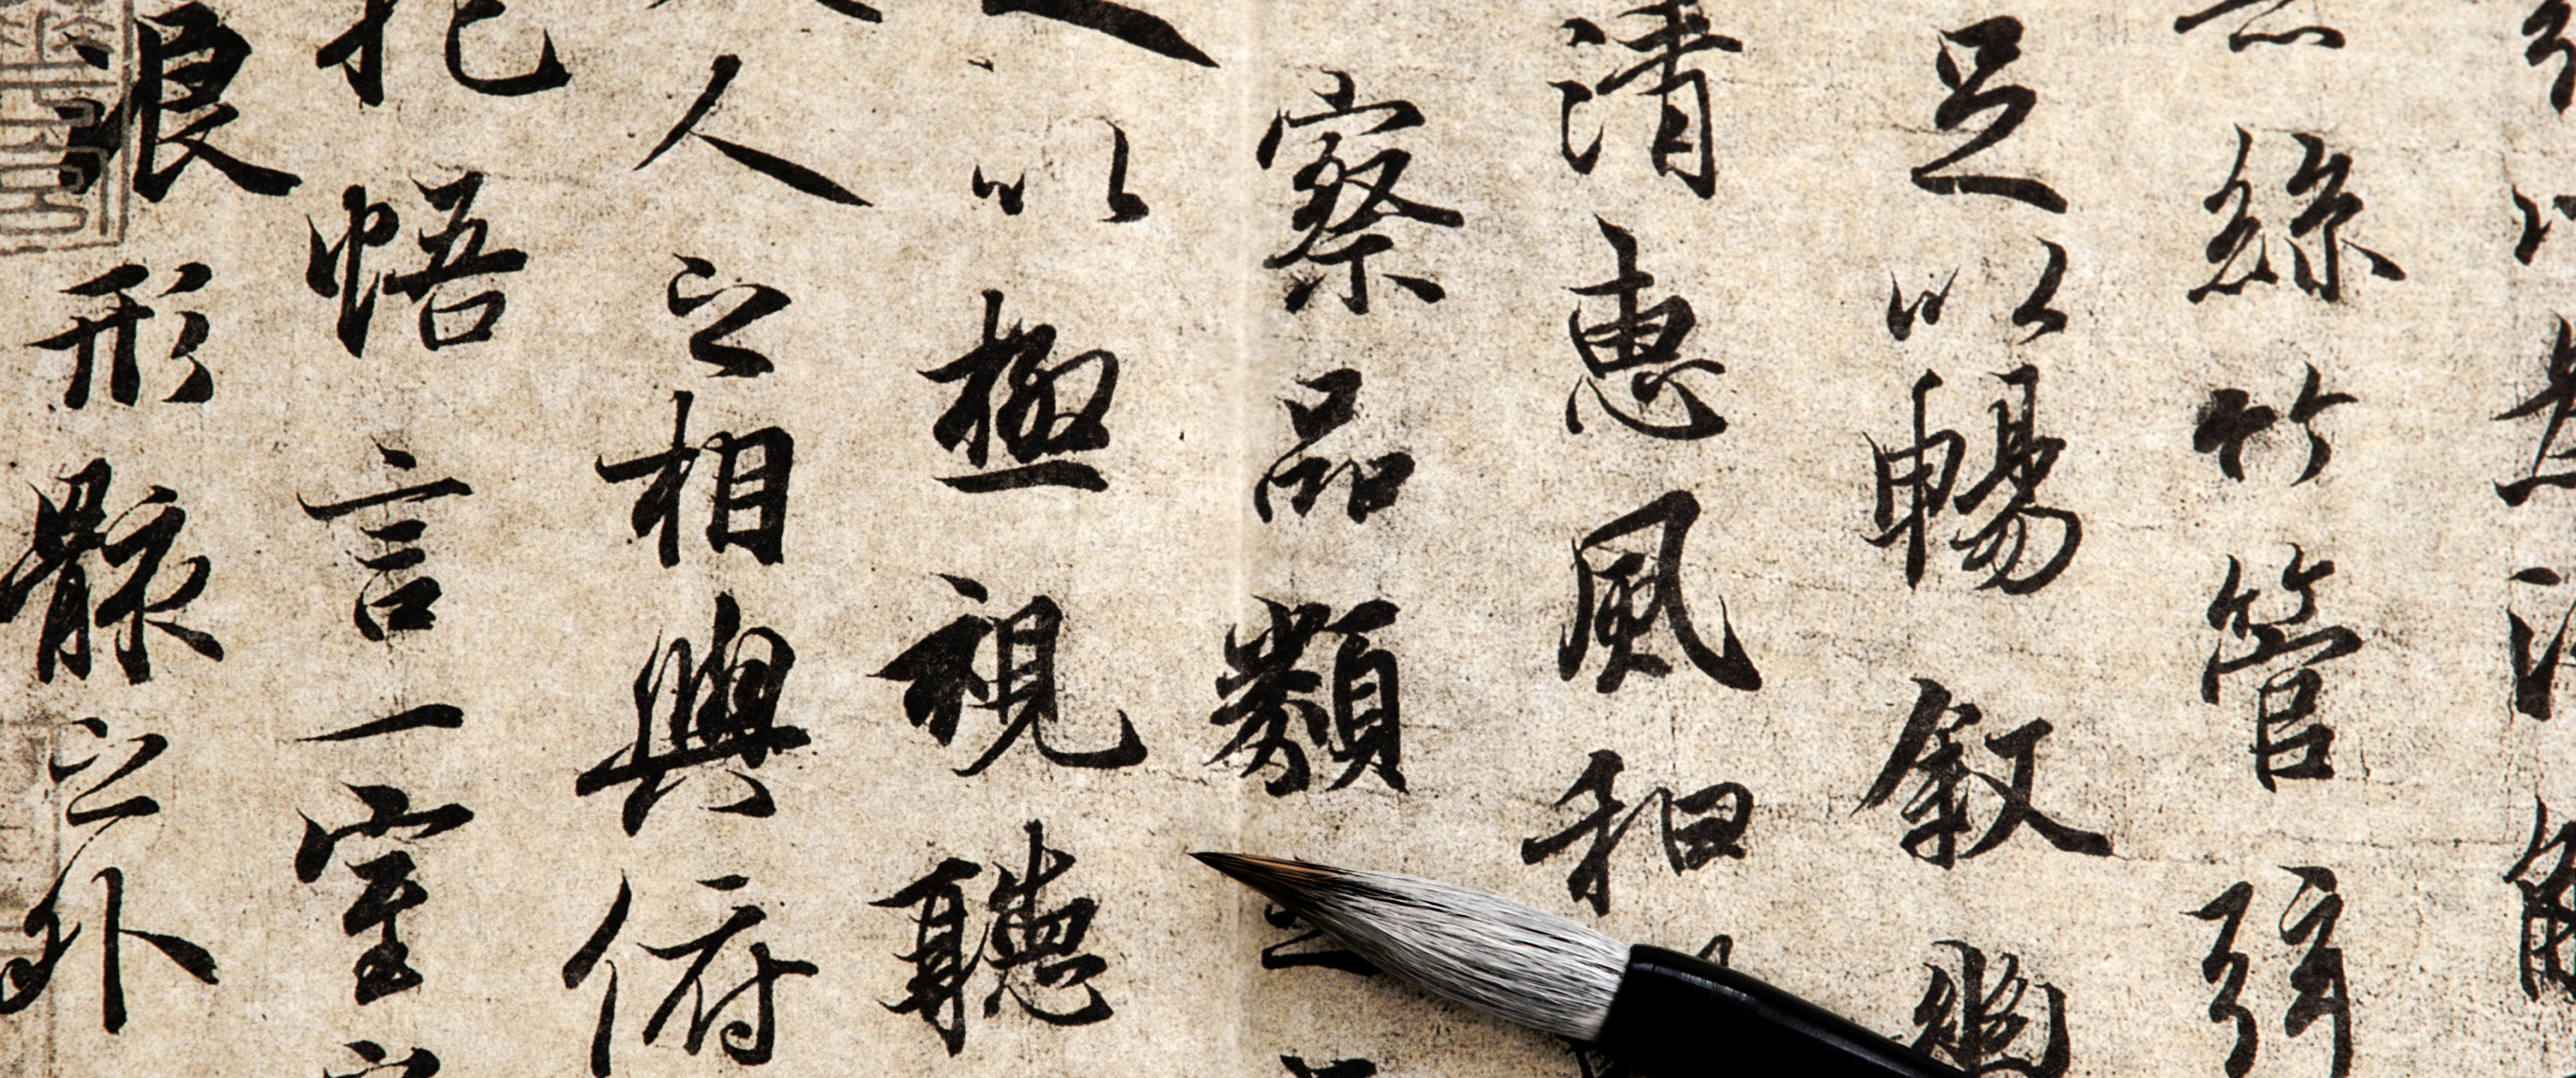 絲竹管弦
足以暢敘幽
清惠風和
察品類
以極視聽
人之相與俯
悟言一室
浪形骸之外